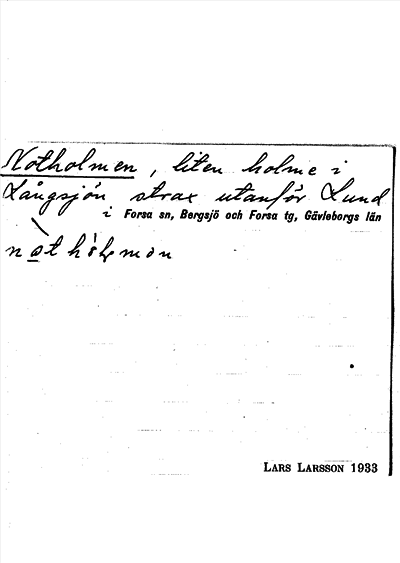 Notholmen, liten holme i
Långsjön strax utanför Lund
i Forsa sn, Bergsjö och Forsa tg, Gävleborgs län
LARS LARSSON 1933